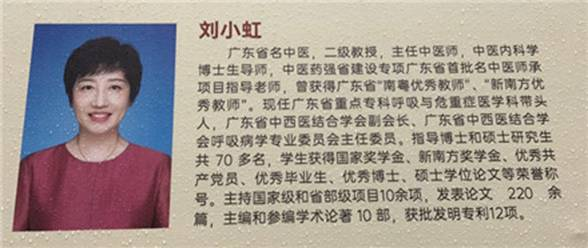 刘小虹
广东省名中医，二级教授，主任中医师，中医内科学
博士生导师，中医药强省建设专项广东省首批名中医师承
项目指导老师，曾获得广东省“南粤优秀教师”、“新南方优
秀教师”。现任广东省重点专科呼吸与危重症医学科带头
人，广东省中西医结合学会副会长、广东省中西医结合学
会呼吸病学专业委员会主任委员。指导博士和硕士研究生
共 70 多名，学生获得国家奖学金、新南方奖学金、优秀共
产党员、优秀毕业生、优秀博士、硕士学位论文等荣誉称
号。主持国家级和省部级项目10余项，发表论文 220 余
篇，主编和参编学术论著 10 部，获批发明专利12项。